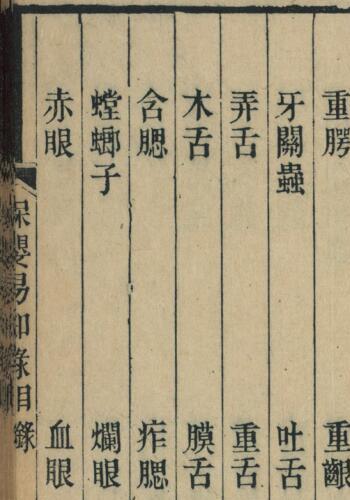 重腭 重齦
牙關蟲 吐舌
弄舌 重舌
木舌 膜舌
含腮 痄腮
螳螂子 爛眼
赤眼 血眼
保嬰易知錄目錄